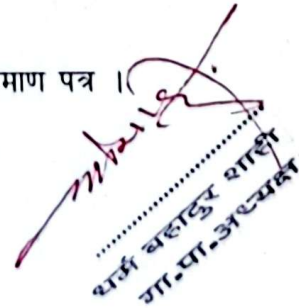 माण पत्र ।
धर्म बहादुर शाही
गा.पा.अध्यक्ष